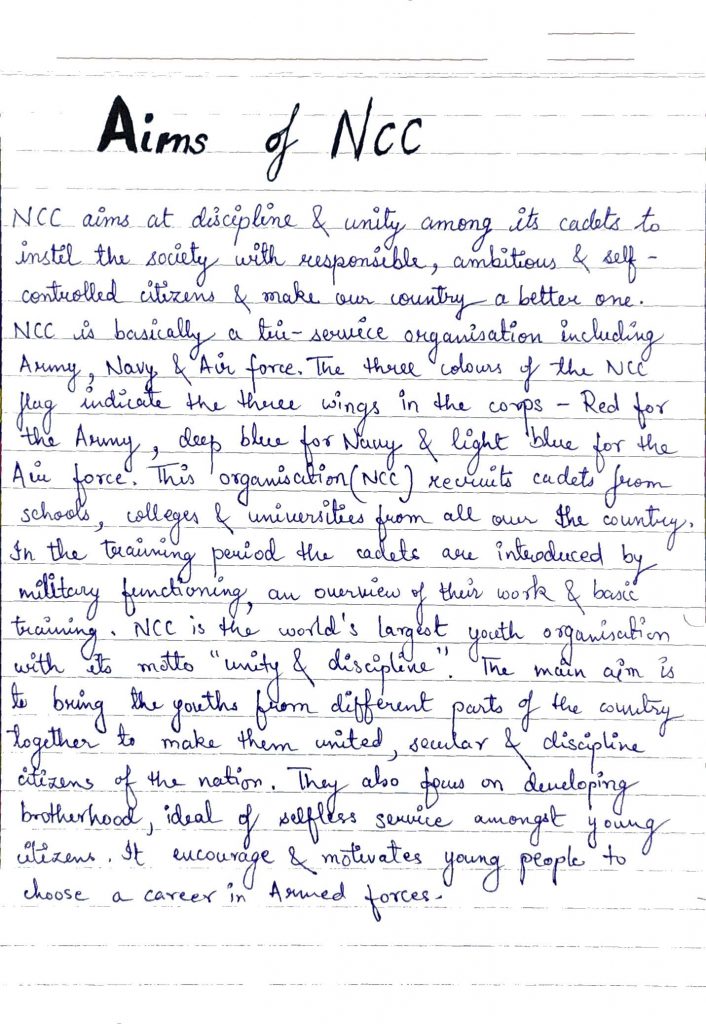 Aims of NCC
NCC aims at discipline & unity among its cadets to
instil the society with responsible, ambitious & self-
controlled citizens & make our country a better one.
NCC is basically a tri-service organisation including
Army, Navy & Air force. The three colours of the NCC
flag indicate the three wings in the corps - Red for
the Army, deep blue for Navy & light blue for the
Air force. This organisation (NCC) recruits cadets from
schools, colleges & universities from all over the country.
In the training period the cadets are introduced by
military functioning, an overview of their work & basic
training. NCC is the world's largest youth organisation
with its motto "unity & discipline". The main aim is
to bring the youths from different parts of the country
together to make them united, secular & discipline
citizens of the nation. They also focus on developing
brotherhood, ideal of selfless service amongst young
citizens. It encourage & motivates young people to
choose a career in Armed forces.